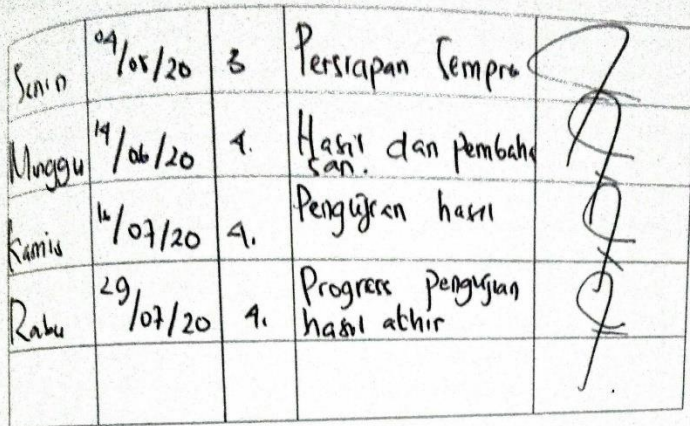 Senin 04/05/20 3 Persiapan Sempro
Minggu 14/06/20 4. Hasil dan Pembaha
san.
Kamis 16/07/20 4. Pengujian hasil
Rabu 29/07/20 4. Progress pengujian
hasil akhir